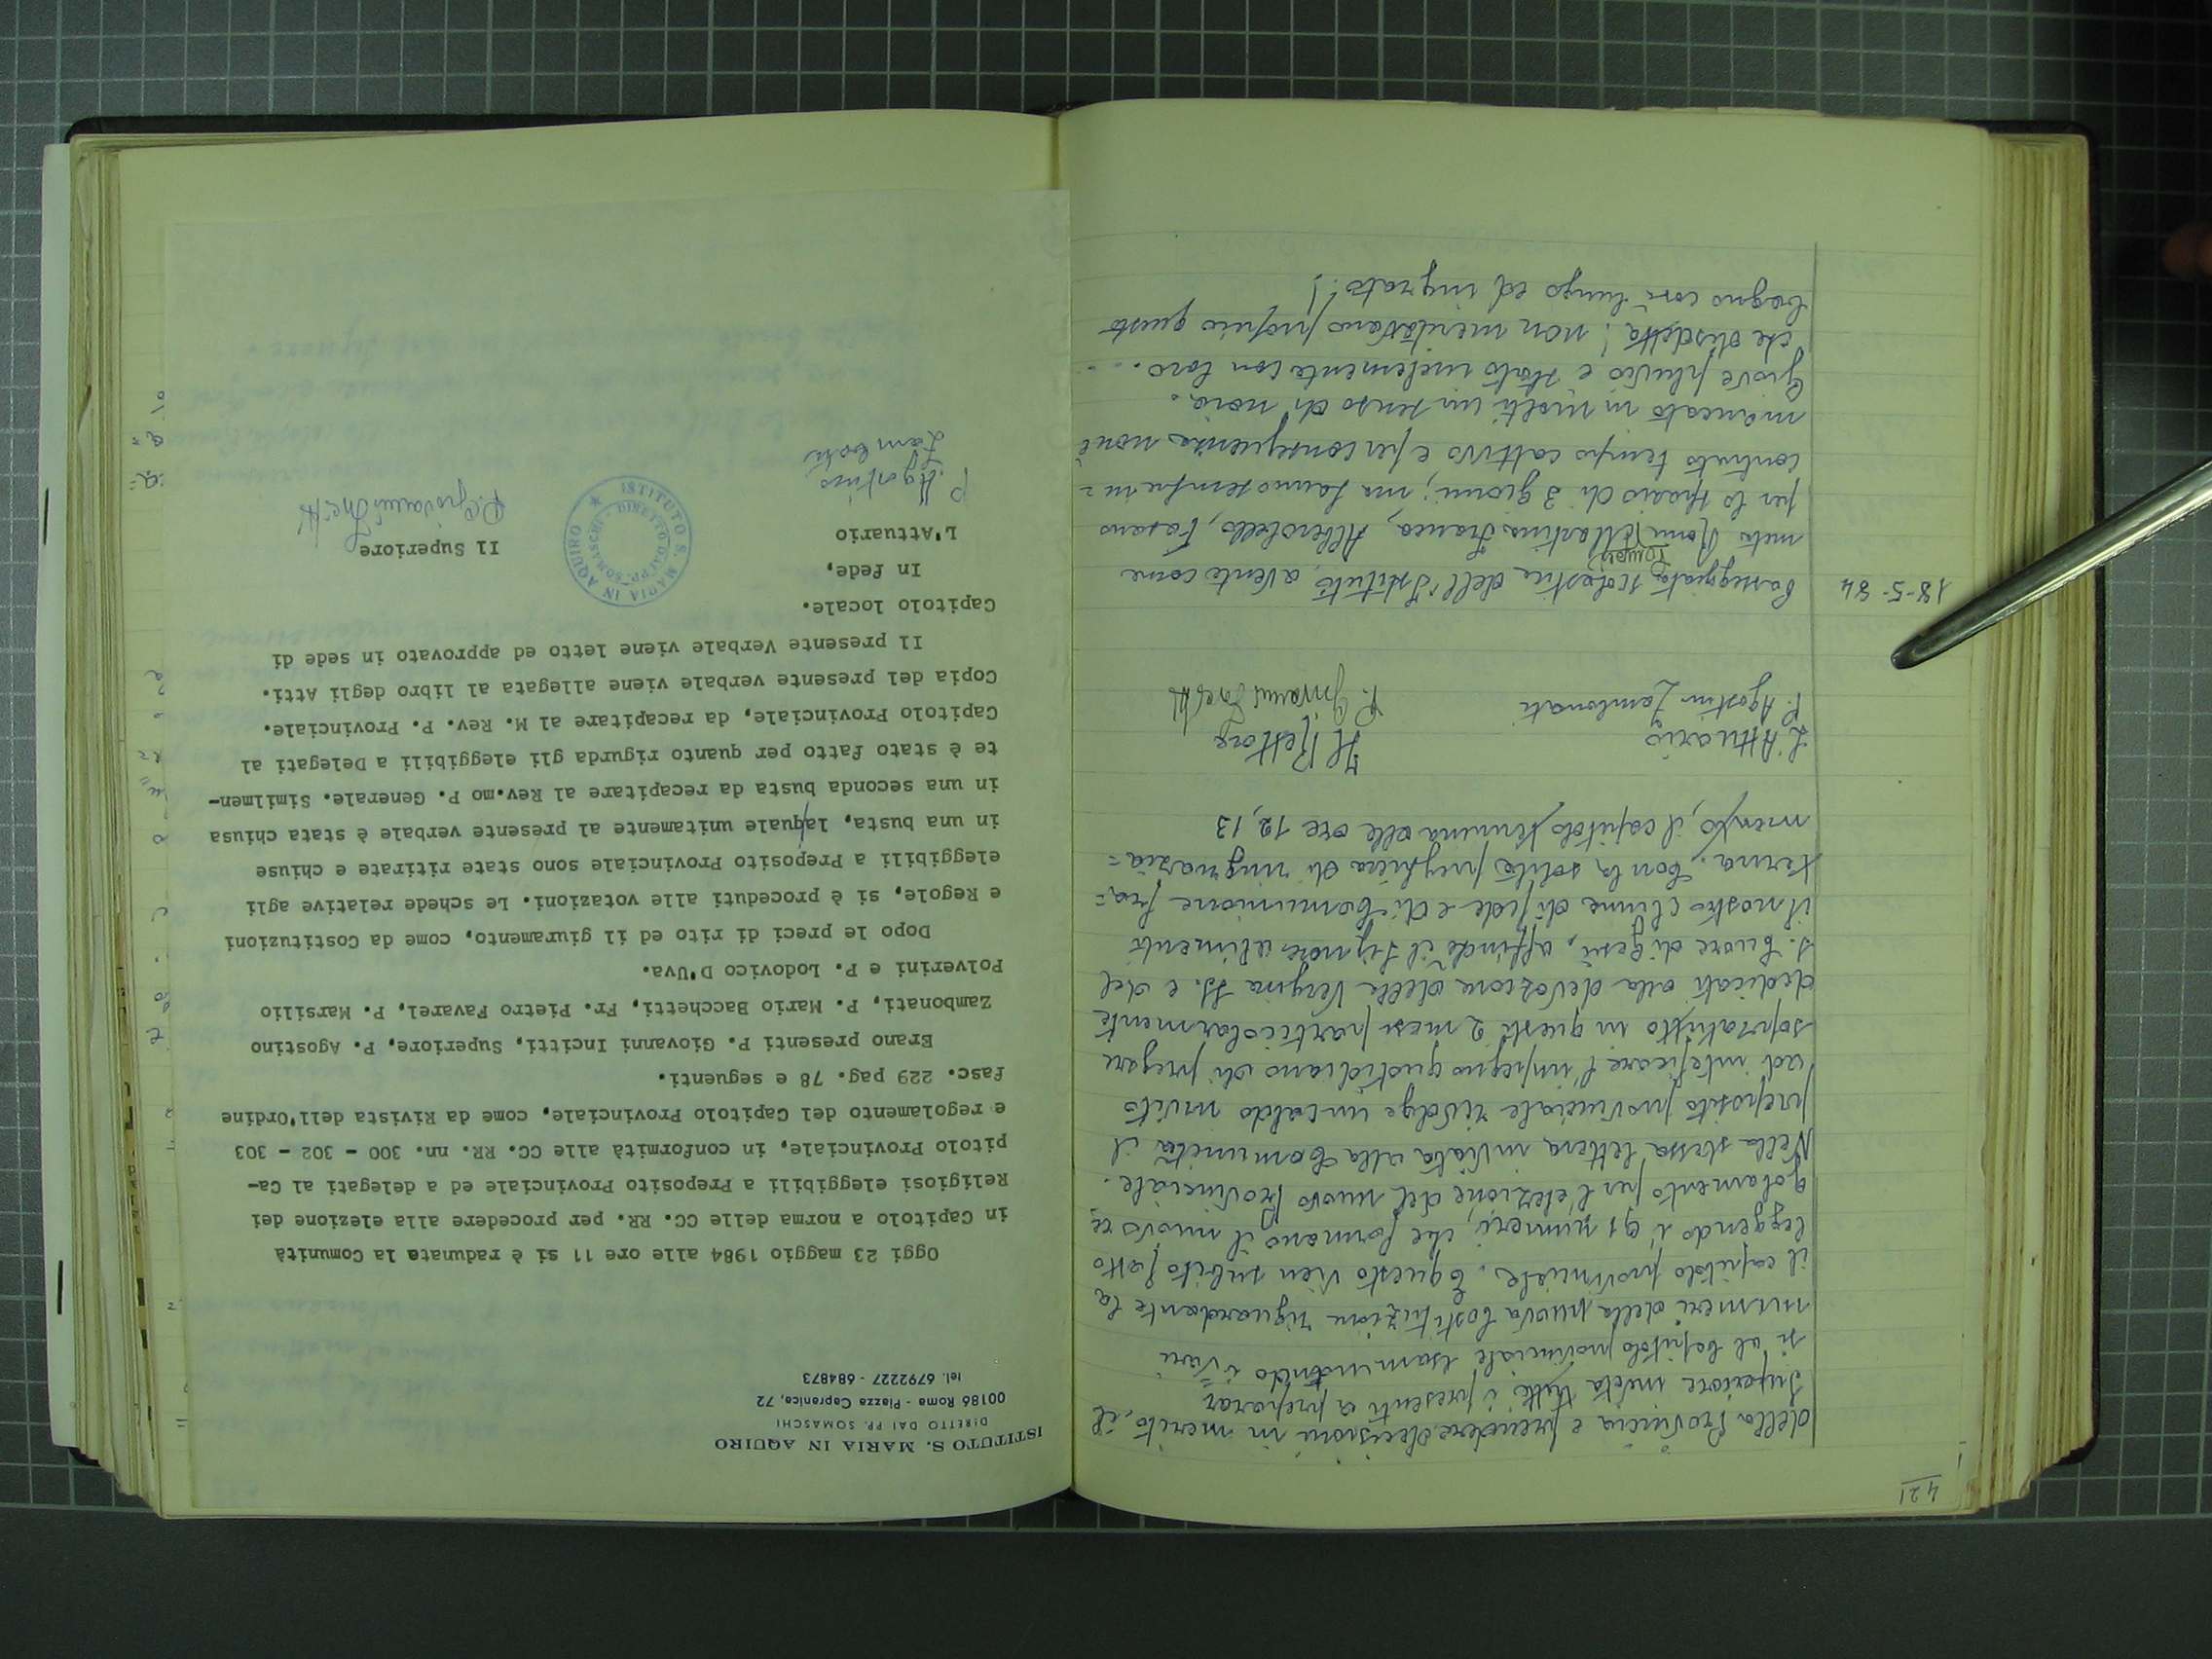 421
della Provincia e prendere decisioni in merito, il
Superiore invita tutti i presenti a preparar
si al Capitolo provinciale esaminando i vari
numeri della nuova Costituzione riguardante la
il capitolo provinciale. E questo vien subito fatto
leggendo i 91 numeri, che formano il nuovo re
golamento per l'elezione del nuovo Provinciale.
Nella stessa lettera inviata alla Comunità il
preposito provinciale rivolge un caldo invito
ad intensificare l'impegno quotidiano di pregare
sopratutto in questi 2 mesi particolarmente
dedicati alla devozione della Vergine SS. e del
S. Cuore di Gesù, affinché il Signore alimenti
il nostro clima di fede e di Comunione fra=
terna. Con la solita preghiera di ringrazia=
mento, il capitolo termina alle ore 12,13
L'Attuario
Il Rettore
P. Agostino Zambonati
P. Giovanni Incitti
18-5-84
Passeggiata scolastica dell'Istituto avente come
meta Martina Franca, Alberobello, Fasano
per lo spazio di 3 giorni; ma hanno sempre in=
contrato tempo cattivo e per conseguenza non è
mancato in molti un senso di noia.
Giove pluvio è stato inclemente con loro...
che disdetta! non meritavano proprio questo
bagno così lungo ed ingrato!
ISTITUTO S. MARIA IN AQUIRO
DIRETTO DAI PP. SOMASCHI
00186 Roma - Piazza Capranica, 72
tel. 6792227 - 684873
Oggi 23 maggio 1984 alle ore 11 si è radunata la Comunità
in Capitolo a norma delle CC. RR. per procedere alla elezione dei
Religiosi eleggibili a Preposito Provinciale ed a delegati al Ca-
pitolo Provinciale, in conformità alle CC. RR. nn. 300 - 302 - 303
e regolamento del Capitolo Provinciale, come da Rivista dell'Ordine
fasc. 229 pag. 78 e seguenti.
Erano presenti P. Giovanni Incitti, Superiore, P. Agostino
Zambonati, P. Mario Bacchetti, Fr. Pietro Favarel, P. Marsilio
Polverini e P. Lodovico D'Uva.
Dopo le preci di rito ed il giuramento, come da Costituzioni
e Regole, si è proceduti alle votazioni. Le schede relative agli
eleggibili a Preposito Provinciale sono state ritirate e chiuse
in una busta, laquale unitamente al presente verbale è stata chiusa
in una seconda busta da recapitare al Rev.mo P. Generale. Similmen-
te è stato fatto per quanto rigurda gli eleggibili a Delegati al
Capitolo Provinciale, da recapitare al M. Rev. P. Provinciale.
Copia del presente verbale viene allegata al libro degli Atti.
Il presente Verbale viene letto ed approvato in sede di
Capitolo locale.
In fede,
L'Attuario
Il Superiore
P. Agostino
Zambonati
P. Giovanni Incitti
ISTITUTO S. MARIA IN AQUIRO
DIRETTO DAI PP. SOMASCHI